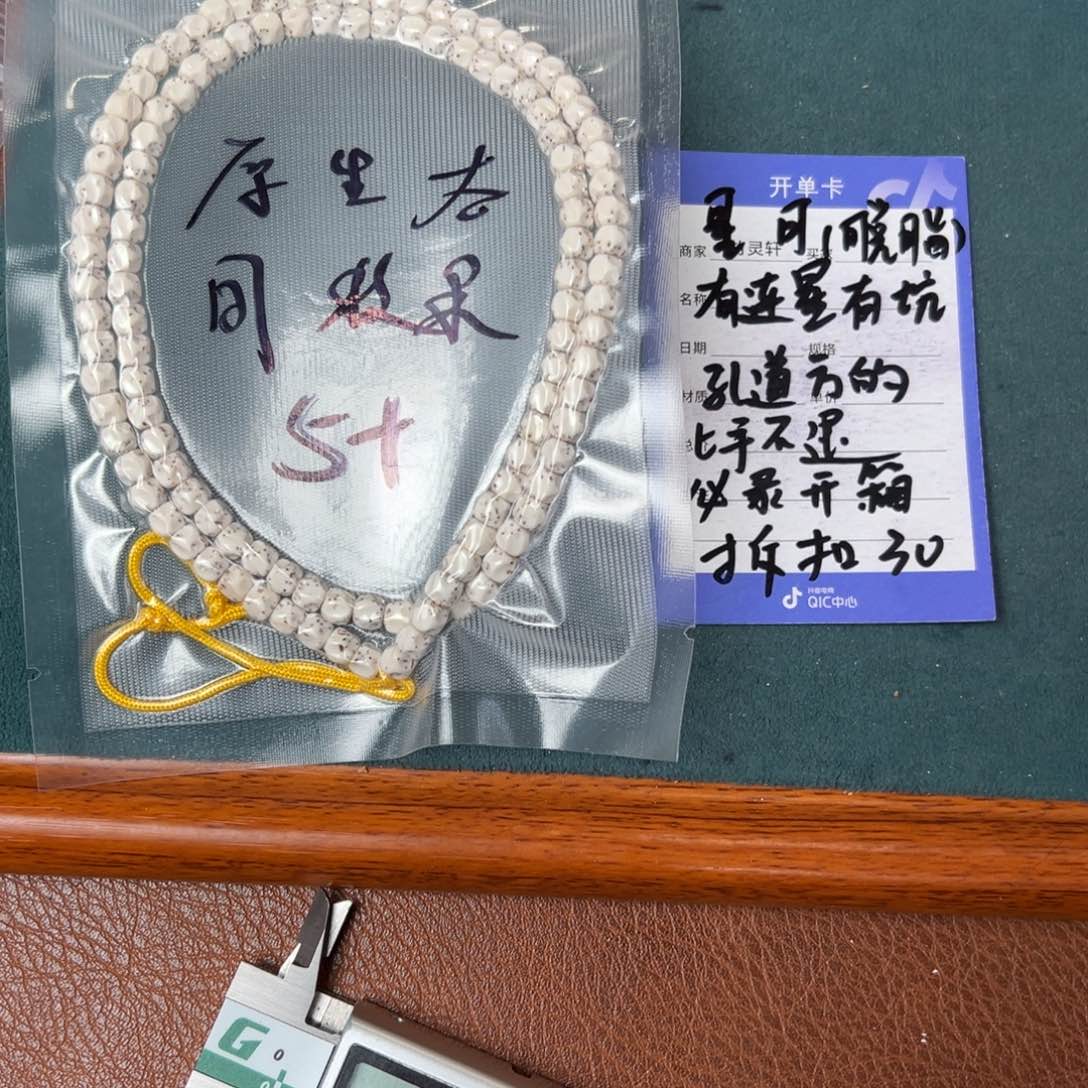 原生态
同效果
5+
开单卡
星月(脱脂)
商家
灵轩
名称
有连星有坑
日期
规格
孔道方的
材质
单价
上手不退
必录开箱
拆扣30
抖音电商
QIC中心
G
0